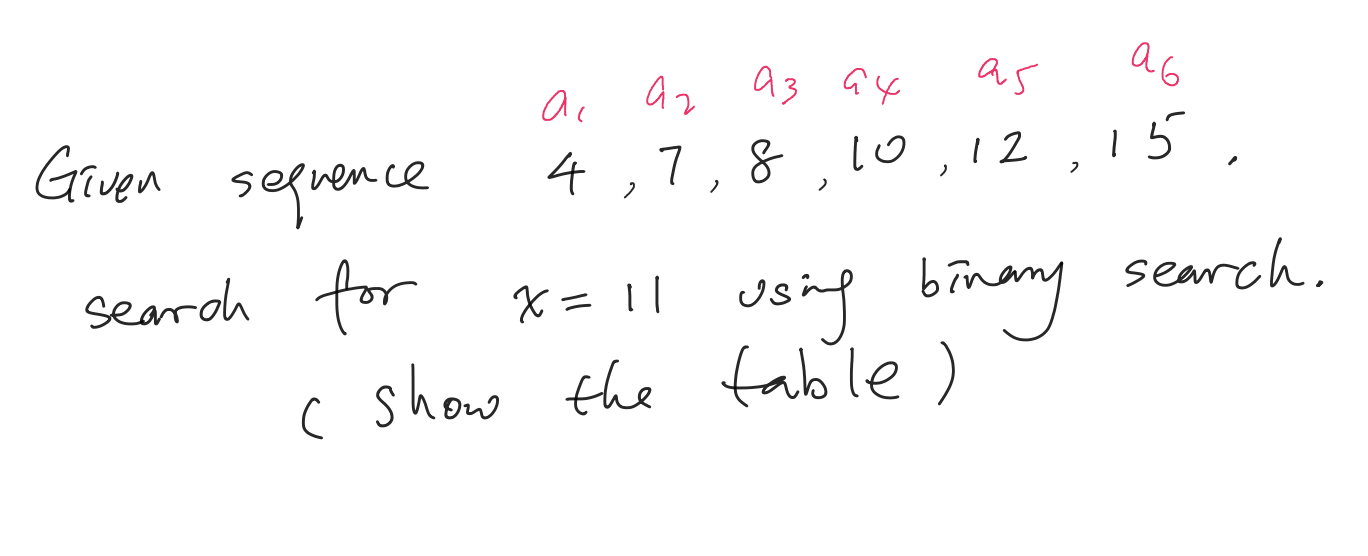 a₁ a₂ a₃ a₄ a₅ a₆
Given sequence 4 , 7 , 8 , 10 , 12 , 15 .
search for x = 11 using binary search.
( show the table )